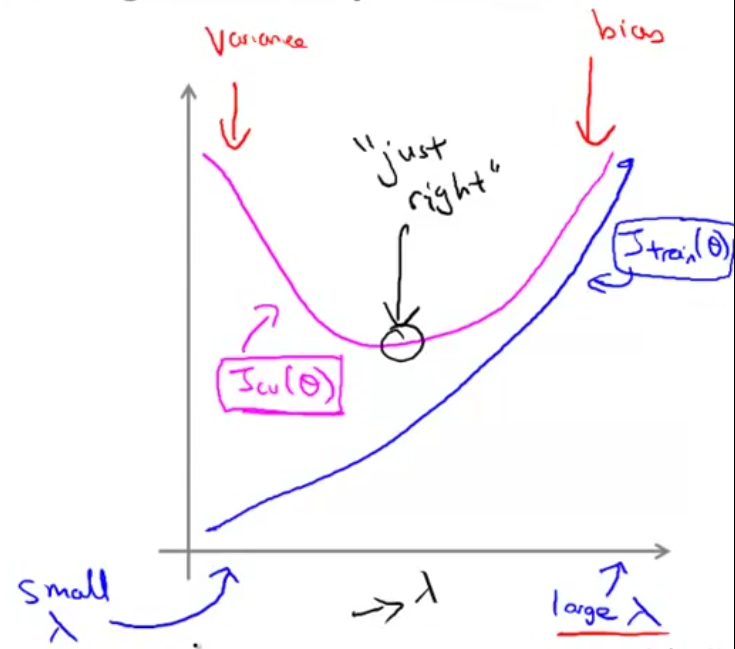 Variance
bias
"just
right"
Jtrain(θ)
Jcv(θ)
small
λ
→ λ
large λ